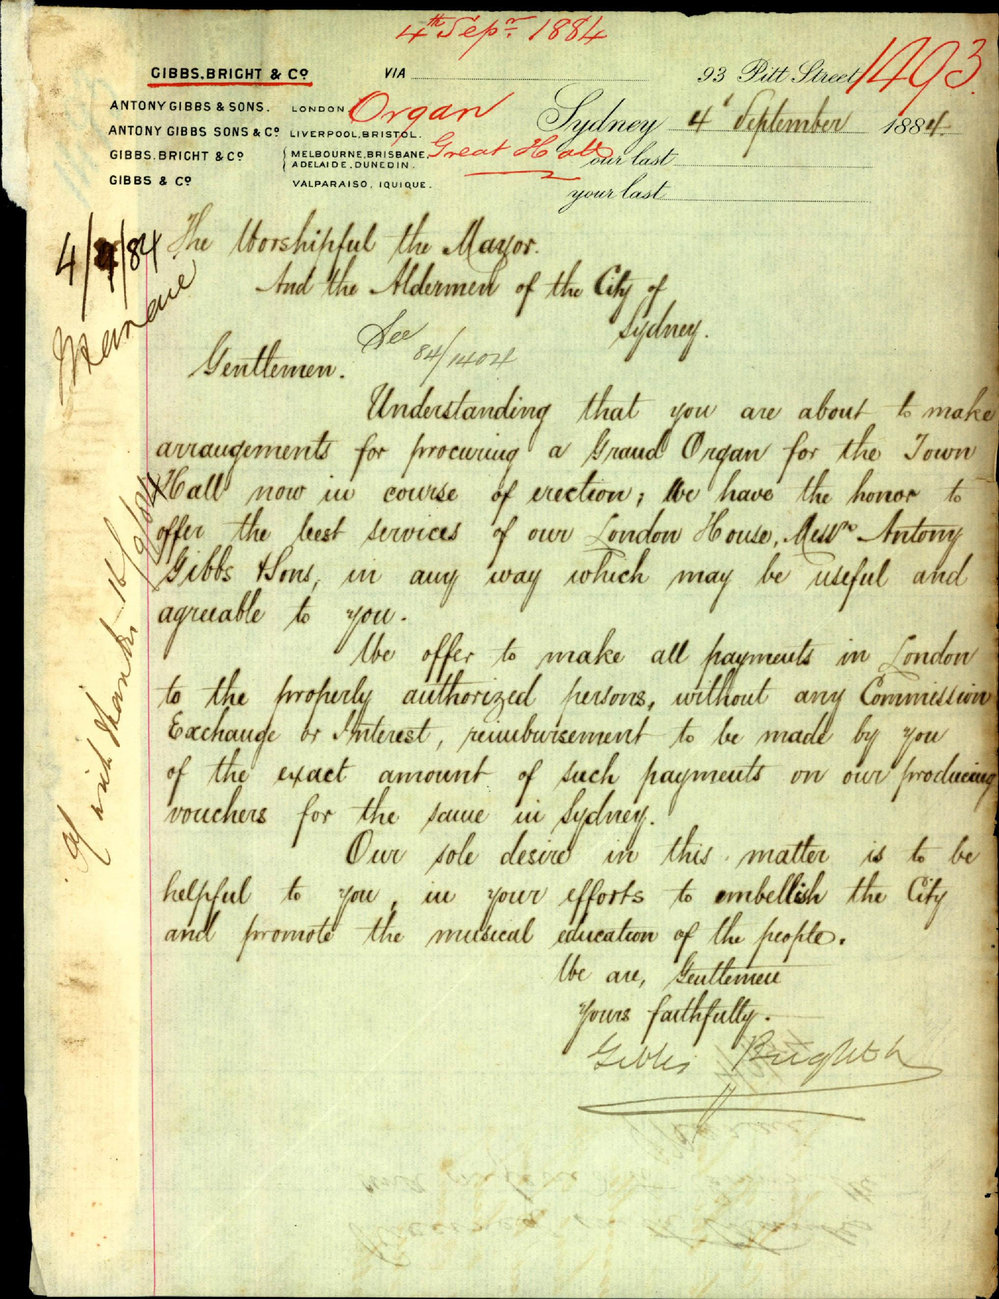 4th Sepr. 1884
GIBBS, BRIGHT & Co
VIA
93 Pitt Street
1493.
ANTONY GIBBS & SONS. LONDON.
Organ
Sydney 4th September 1884.
ANTONY GIBBS SONS & Co LIVERPOOL, BRISTOL.
GIBBS, BRIGHT & Co MELBOURNE, BRISBANE,
ADELAIDE, DUNEDIN.
Great Hall
our last
GIBBS & Co VALPARAISO, IQUIQUE.
your last
4/9/84
The Worshipful the Mayor.
And the Aldermen of the City of
Sydney.
See 84/1404
Gentlemen.
Understanding that you are about to make
arrangements for procuring a Grand Organ for the Town
Hall now in course of erection; We have the honor to
offer the best services of our London House, Messrs Antony
Gibbs & Sons, in any way which may be useful and
agreeable to you.
We offer to make all payments in London
to the properly authorized persons, without any Commission
Exchange or Interest, reimbursement to be made by you
of the exact amount of such payments on our producing
vouchers for the same in Sydney.
Our sole desire in this matter is to be
helpful to you, in your efforts to embellish the City
and promote the musical education of the people.
We are, Gentlemen
Yours faithfully.
Gibbs Bright & Co
with thanks 16/9/84